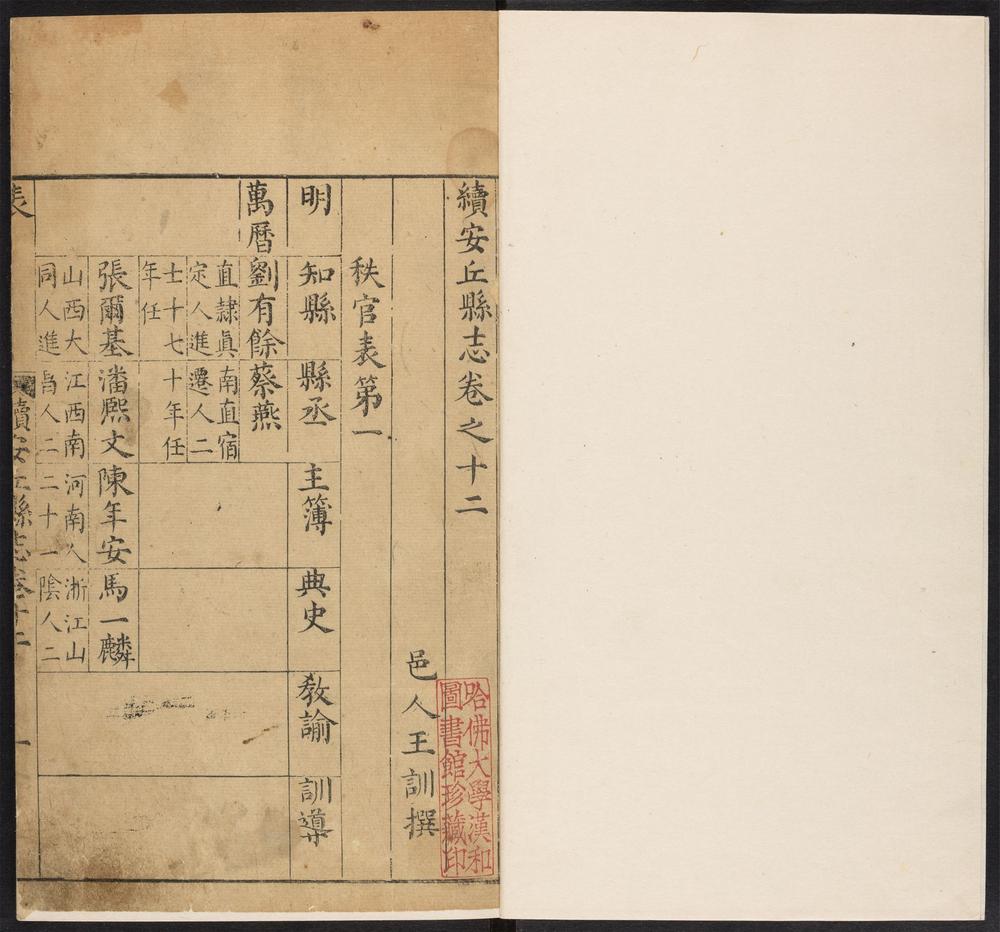 續安丘縣志卷之十二
邑人王訓撰
秩官表第一
明 知縣 縣丞 主簿 典史 教諭 訓導
萬曆 劉有餘 蔡燕
直隸眞 南直宿
定人進 遷人二
士十七 十年任
年任
張爾基 潘熈文 陳年安 馬一麟
山西大 江西南 河南人 浙江山
同人進 昌人二 二十一 陰人二
表 續安丘縣志卷十二 一
哈佛大學漢和
圖書館珍藏印